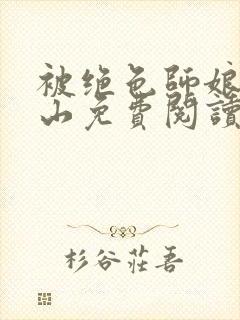 被绝色師娘
山免費閱讀
杉谷莊吾